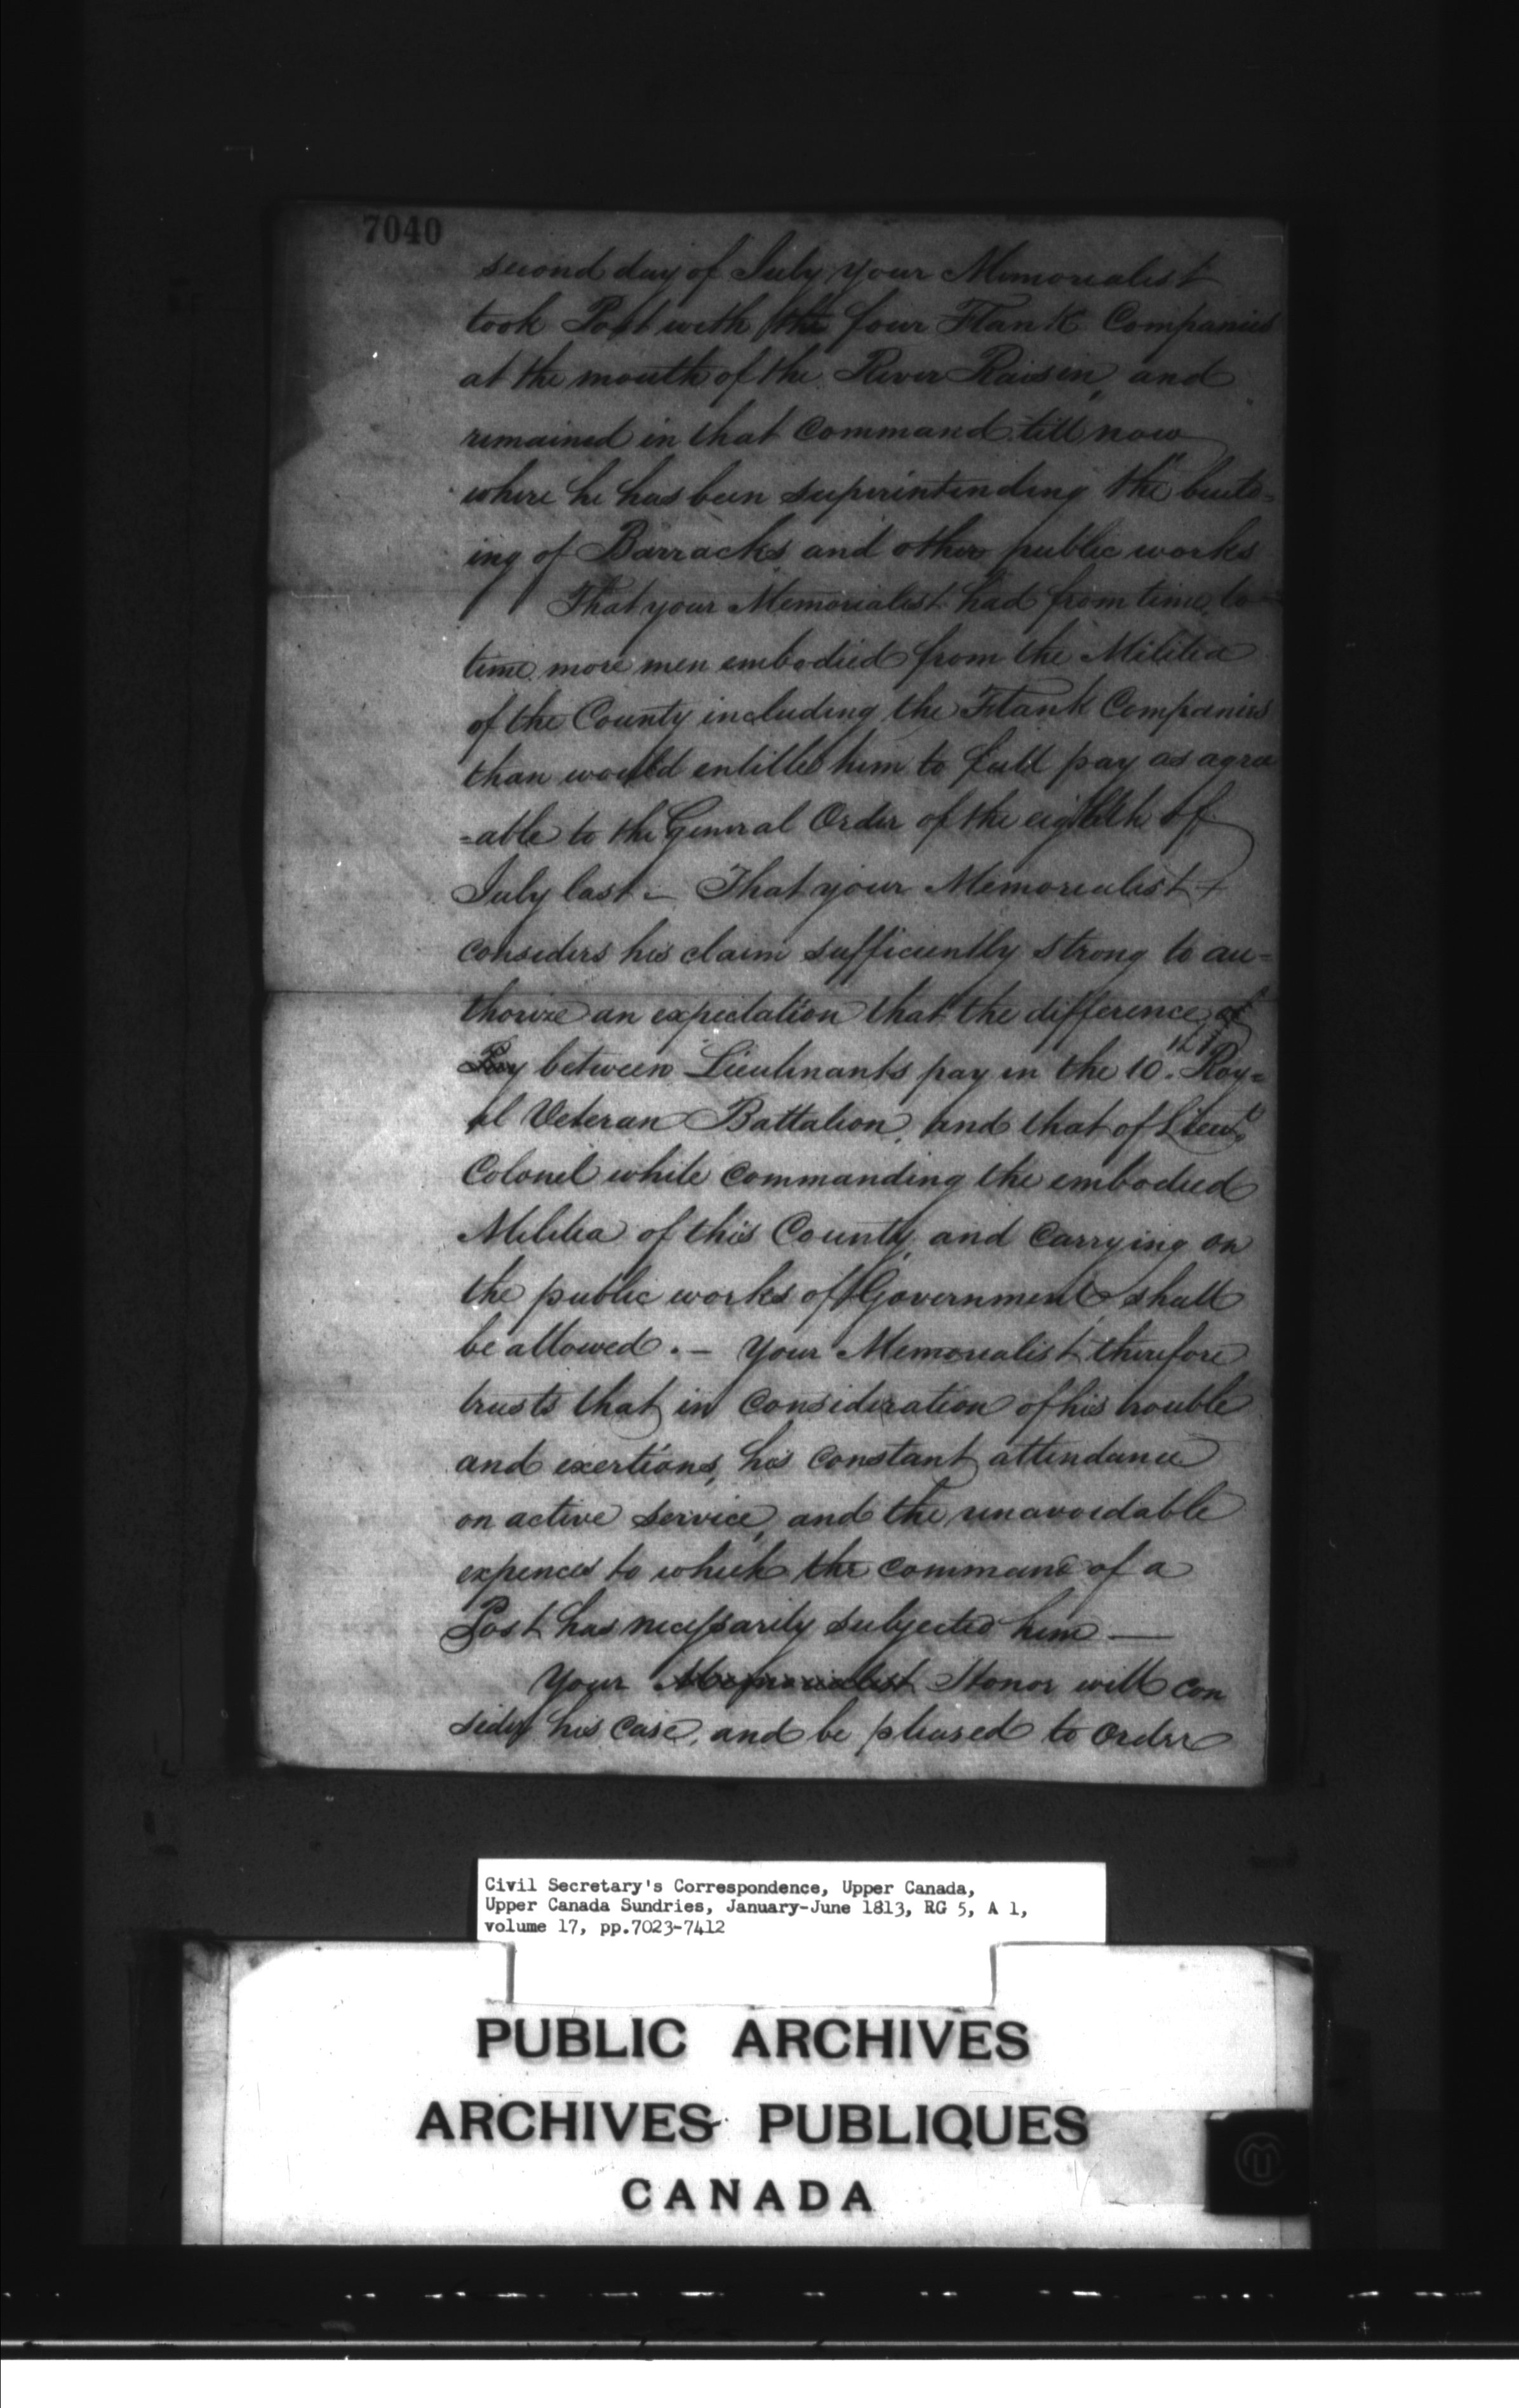 7040
second day of July your Memorialist
took Post with the four Flank Companies
at the mouth of the River Raisin, and
remained in that Command till now
where he has been superintending the build=
ing of Barracks and other public works
That your Memorialist had from time to
time more men embodied from the Militia
of the County including the Flank Companies
than would entitle him to full pay as agre
=able to the General Order of the eighth of
July last — That your Memorialist
considers his claim sufficiently strong to au=
thorize an expectation that the difference of
Pay between Lieutenants pay in the 10.th Roy=
al Veteran Battalion, and that of Lieut.
Colonel while Commanding the embodied
Militia of this County, and Carrying on
the public works of Government shall
be allowed. — Your Memorialist therefore
trusts that in Consideration of his trouble
and exertions, his Constant attendance
on active Service, and the unavoidable
expences to which the Command of a
Post has necessarily subjected him —
Your Memorialist Honor will con
sider his Case, and be pleased to Order
Civil Secretary's Correspondence, Upper Canada,
Upper Canada Sundries, January-June 1813, RG 5, A 1,
volume 17, pp.7023-7412
PUBLIC ARCHIVES
ARCHIVES PUBLIQUES
CANADA